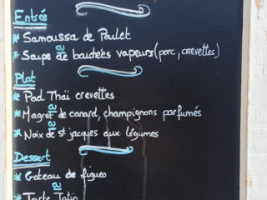 Entrés
* Samoussa de Poulet
ou
* Soupe de bouchées vapeurs (porc, crevettes)
Plat
* Pad Thaï crevettes
ou
* Magret de canard, champignons parfumés
ou
* Noix de st jacques aux légumes
Dessert
* Gateau de figues
ou
* Tarte Tatin